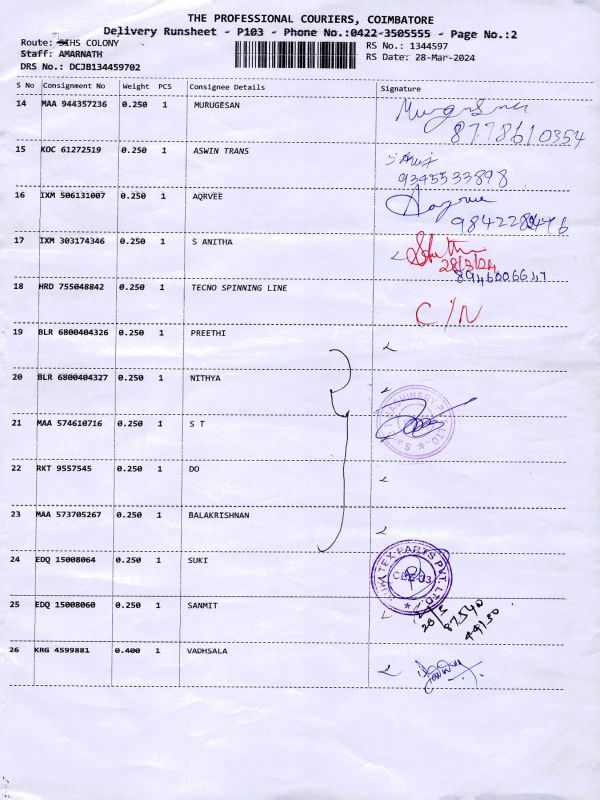 THE PROFESSIONAL COURIERS, COIMBATORE
Delivery Runsheet - P103 - Phone No.:0422-3505555 - Page No.:2
Route: SIHS COLONY
RS No.: 1344597
Staff: AMARNATH
RS Date: 28-Mar-2024
DRS No.: DCJB134459702
S No Consignment No Weight PCS Consignee Details Signature
14 MAA 944357236 0.250 1 MURUGESAN
8778610354
15 KOC 61272519 0.250 1 ASWIN TRANS
9345533898
16 IXM 506131007 0.250 1 AQRVEE
17 IXM 303174346 0.250 1 S ANITHA
28/3/24
8946006647
18 HRD 755048842 0.250 1 TECNO SPINNING LINE C/N
19 BLR 6800404326 0.250 1 PREETHI
20 BLR 6800404327 0.250 1 NITHYA
21 MAA 574610716 0.250 1 S T
22 RKT 9557545 0.250 1 DO
23 MAA 573705267 0.250 1 BALAKRISHNAN
24 EDQ 15008064 0.250 1 SUKI
25 EDQ 15008060 0.250 1 SANMIT
28/3
87540
44150
26 KRG 4599881 0.400 1 VADHSALA